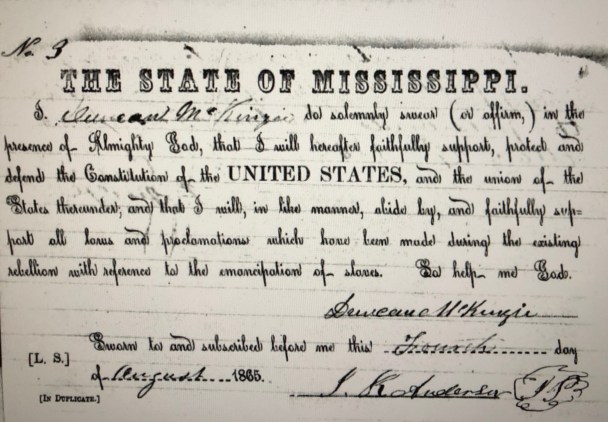 No. 3
THE STATE OF MISSISSIPPI.
I, Duncan McKinzie do solemnly swear (or affirm,) in the
presence of Almighty God, that I will hereafter faithfully support, protect and
defend the Constitution of the UNITED STATES, and the union of the
States thereunder; and that I will, in like manner, abide by, and faithfully sup=
port all laws and proclamations which have been made during the existing
rebellion with reference to the emancipation of slaves. So help me God.
McKinzie
[L. S.] Sworn to and subscribed before me this Fourth day
of August 1865.
Anderson
[IN DUPLICATE.]